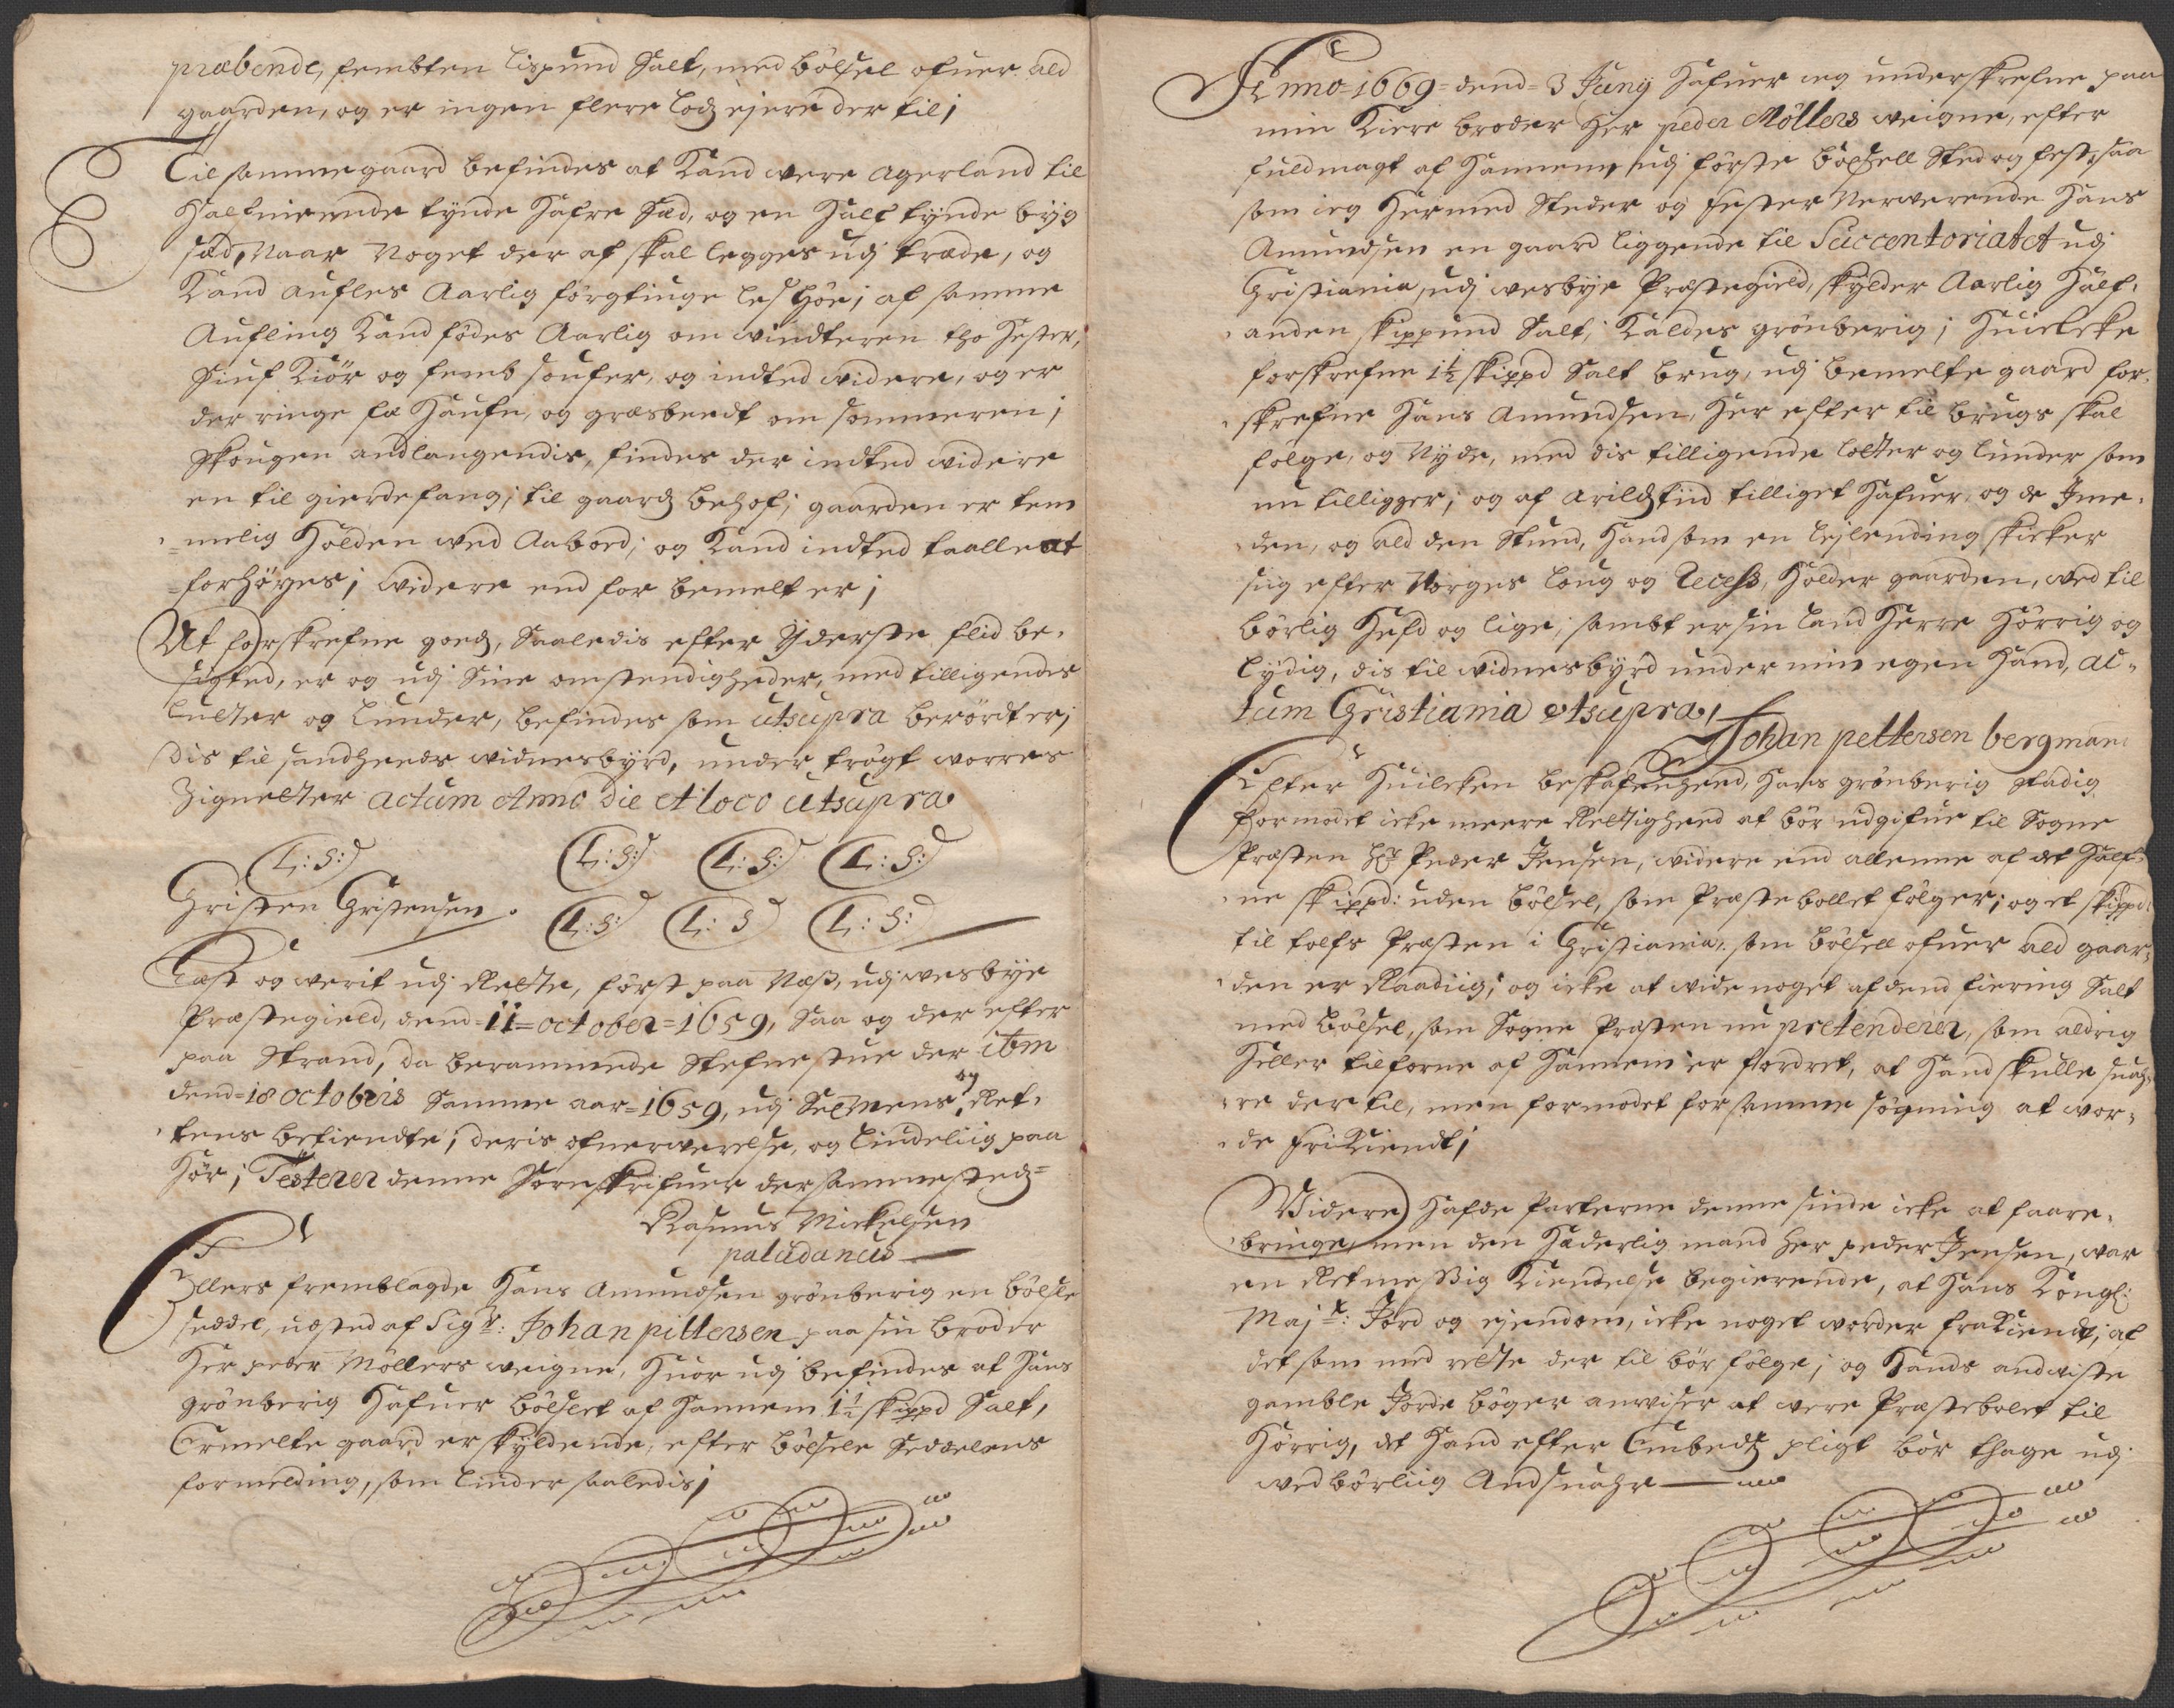 præbende, fembten lispund Salt, med böxel ofuer ald
gaarden, og er ingen flere lodz ejere der til;
Til samme gaard befindes at kand were agerland til
halfniende tynde hafre sæd, og en half tynde byg
sæd, Naar Noget der af skal legges udj træde, og
kand aufles Aarlig förgtiuge les höe; af samme
Aufling kand födes Aarlig om windteren tho hester,
siuf kiör og femb soufer, og indted widere, og er
der ringe fæ haufn, og græsbendt om sommeren;
Skougen andlangendis, findes der indted widere
en til gierdefang; til gaardz behof; gaarden er tem
melig holden wed Aaboed; og kand indted taalle at
forhöyes; widere end for bemelt er;
At forskrefne goedz, Saaledis efter Yderste flid be-
sigted, er og udj Sine omstendigheder, med tilligendes
lutter og lunder, befindes som utsupra berördt er;
dis til sandheeds widnesbyrd, under trögt worres
Zigneter actum Anno die et loco utsupra
(L: S:) (L: S:) (L: S:) (L: S:)
Christen Christensen. (L: S:) (L: S) (L: S:)
Læst og werit udj Rette, först paa Næss, udj wesbye
Præstegield, dend 11 october 1659, Saa og der efter
paa Strand, da berammede Stefnestue der itm
dend 18 octobris Samme aar 1659, udj Selwens og Ret-
tens bekiendte; deris ofuerwerelse, og liudeliig paa
hör; Testerer denne Sornskrifuer der sammestedz
Rasmus Mickelsen
paludanus
Ellers fremblagde Hans Amundsen grönberig en böxle
seddel, udsted af Sigr: Johan pittersen paa sin broder
Her peder Möllers weigne, huor udj befindes at Hans
grönberig hafuer böxlet af hannem 1½ skippd Salt,
Ermelte gaard er skyldende, efter böxele Seddelens
formelding, som liuder saaledis;
Anno 1669 dend 3 Juny hafuer ieg underskrefne paa
min kiere broder Her peder Möllers weigne, efter
fuldmagt af hannem, udj förste böxell Sted og fest, saa
som ieg hermed Steder og fester Nerwerende Hans
Amundsen en gaard liggende til Succentoriatet udj
Christiania, udj wesbye Præstegield, skylder Aarlig half-
anden skippund Salt; kaldes grönberig; huilcke
forskrefne 1½ skippd Salt brug, udj bemelte gaard for-
skrefne Hans Amundsen, her efter til brugs skal
fölge, og Nyde, med dis tilligende lotter og lunder som
nu tilligger; og af arildz tiid tilliget hafuer, og de Jme-
den, og ald den Stund, hand som en leylending skicker
sig efter Norges loug og Recess, holder gaarden, wed til
börlig hefd og lige; sambt er sin land herre hörrig og
lydig, dis til widnesbyrd under min egen hand, ac-
tum Christiania utsupra,
Johan pettersen bergman
Efter huilcken beskafenheed, Hans grönberig stadig
formodet icke meere Rettigheed at bör udgifue til Sogne
Præsten Hr Peder Jensen, widere end allenne af det half-
ne skippd: uden böxel, som Præstebollet fölger; og et skippd
til tolfr Præsten i Christiania, som böxell ofuer ald gaar-
den er Raadiig; og icke at wide noget af dend fiering Salt
med böxel, som Sogne Præsten nu pretenderer, som aldrig
heller tilforne af hannem er fordret, at hand skulle sua-
re der til, men formodet for samme sögning at wor-
de frikiendt;
Widere hafde Parterne denne sinde icke at faare-
bringe, men den hæderlig mand Her peder Jensen, war
en Retmessig kiendelse begierende, at Hans Kongl:
Majt: Jord og eiendom, icke noget worder frakiendt; af
det som med rette der til bör fölge; og hands andwiste
gamble Jorde böger anwiser at were Præstebolet til
hörrig, det hand efter Embedz pligt bör thage udj
wedbörliig Andsuahr